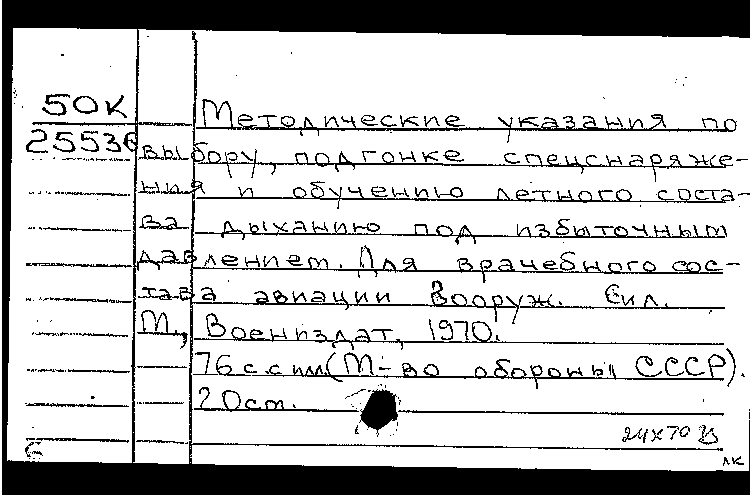 50К
25536
Методические указания по
выбору, подгонке спецснаряже-
ния и обучению летного соста-
ва дыханию под избыточным
давлением. Для врачебного сос-
тава авиации Вооруж. Сил.
М., Воениздат, 1970.
76 с с илл (М-во обороны СССР).
20ст.
24х70 В
лк